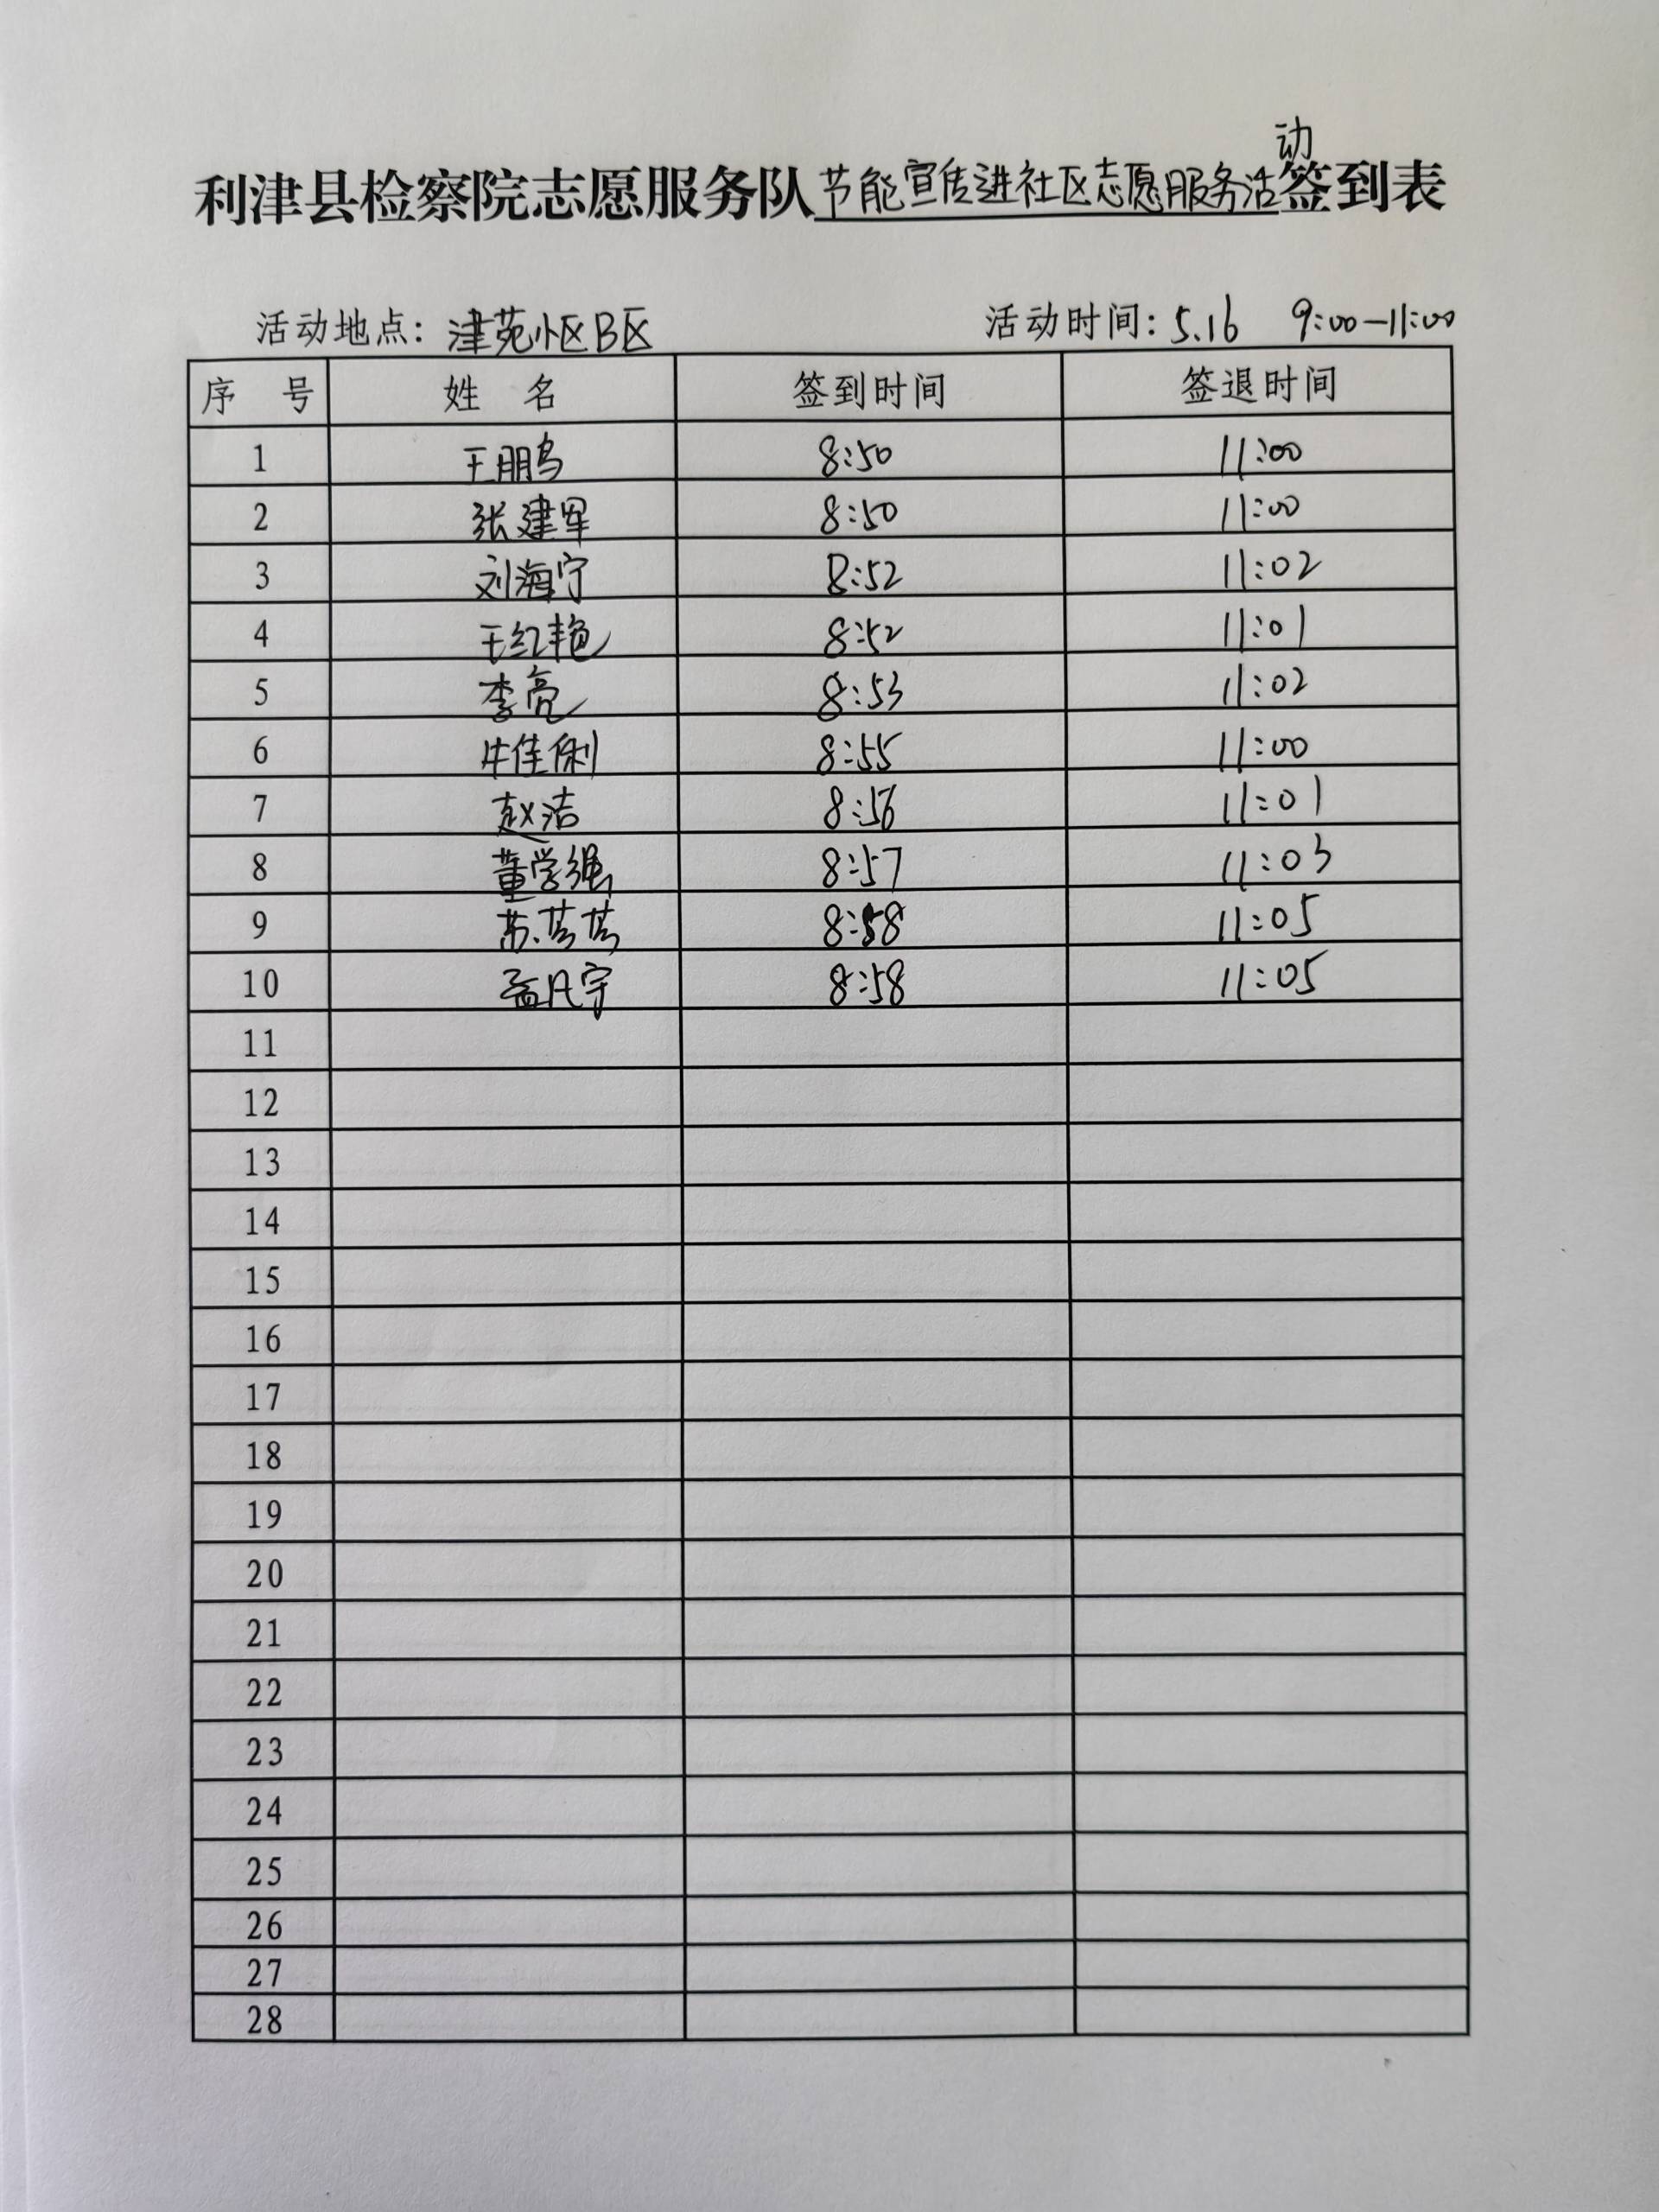 利津县检察院志愿服务队节能宣传进社区志愿服务活动签到表
活动地点：津苑小区B区 活动时间：5.16 9:00-11:00
序 号 姓 名 签到时间 签退时间
1 王朋鸟 8:50 11:00
2 张建军 8:50 11:00
3 刘海宁 8:52 11:02
4 王红艳 8:52 11:01
5 李亮 8:53 11:02
6 牛佳俐 8:55 11:00
7 赵洁 8:56 11:01
8 董学强 8:57 11:03
9 8:58 11:05
10 孟凡宇 8:58 11:05
11
12
13
14
15
16
17
18
19
20
21
22
23
24
25
26
27
28